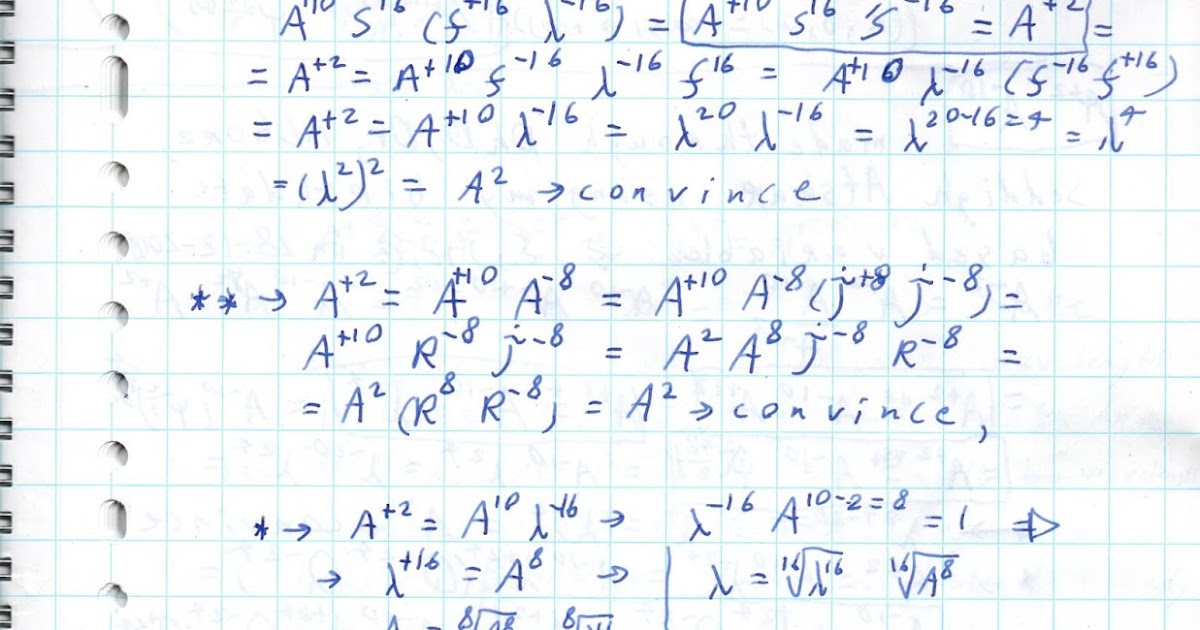 A⁺¹⁰ S¹⁶ (f⁺¹⁶ λ⁻¹⁶) = A⁺¹⁰ S¹⁶ S⁻¹⁶ = A⁺² =
= A⁺² = A⁺¹⁰ f⁻¹⁶ λ⁻¹⁶ f¹⁶ = A⁺¹⁰ λ⁻¹⁶ (f⁻¹⁶ f⁺¹⁶)
= A⁺² = A⁺¹⁰ λ⁻¹⁶ = λ²⁰ λ⁻¹⁶ = λ²⁰⁻¹⁶⁼⁴ = λ⁴
= (λ²)² = A² → convince
** → A⁺² = A⁺¹⁰ A⁻⁸ = A⁺¹⁰ A⁻⁸ (j⁺⁸ j⁻⁸) =
A⁺¹⁰ R⁻⁸ j⁻⁸ = A² A⁸ j⁻⁸ R⁻⁸ =
= A² (R⁸ R⁻⁸) = A² → convince,
* → A⁺² = A¹⁰ λ⁻¹⁶ → λ⁻¹⁶ A¹⁰⁻²⁼⁸ = 1 ⇒
→ λ⁺¹⁶ = A⁸ → | λ = ¹⁶√λ¹⁶ ¹⁶√A⁸